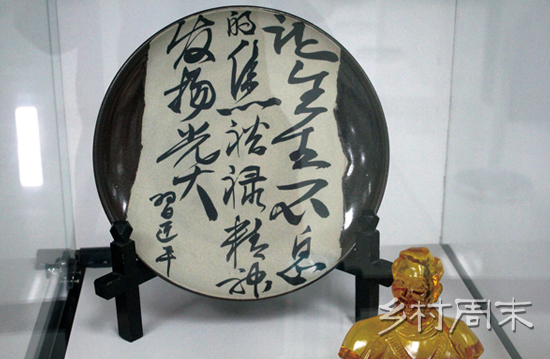 让生生不息
的焦裕禄精神
发扬光大
习近平
乡村周末